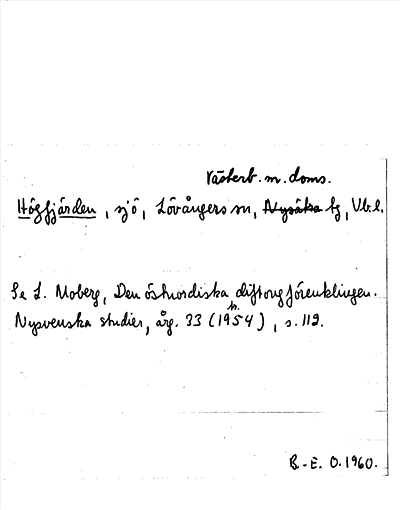 Västerb. m. doms.
Högfjärden, sjö, Lövångers sn, Nysäka tg, Vb. l.
Se L. Moberg, Den östnordiska diftongförenklingen.
Nysvenska studier, årg. 33 (tr. 1954), s. 112.
B.-E. O. 1960.